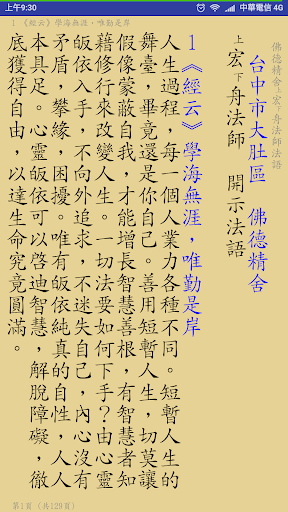 上午9:30 中華電信 4G
1 《經云》學海無涯，唯勤是岸
佛德精舍上宏下舟法師法語
台中市大肚區 佛德精舍
上宏下舟法師 開示法語
1《經云》學海無涯，唯勤是岸
人生過程，每一個人業力各種不同。短暫人生的
舞臺，畢竟還是你自己。善用短暫人生，切莫讓
假像蒙蔽自我，才能增長智慧善根，有智慧者知
藉修行來改變人生。一切法要如何下手？由心靈
皈依入手，不向外追求，不迷失自己，內心沒有
矛盾，攀緣，困擾。唯有皈依純真的自性，人人
本具足。心靈皈依可以啟迪智慧，解脫障礙，徹
底獲得自由，以達生命究竟圓滿。
第1頁 (共129頁)